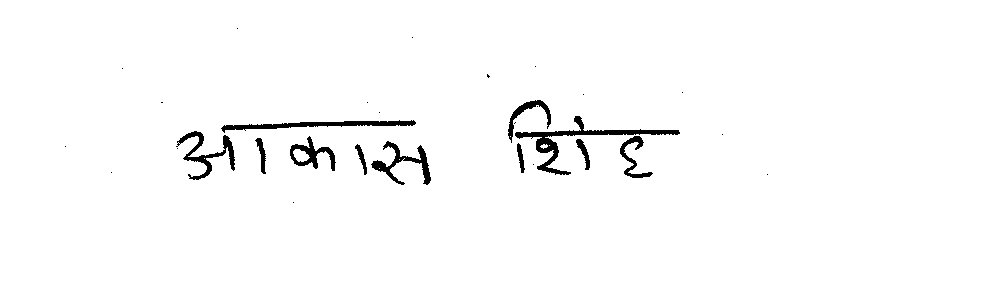 आकास शिंह